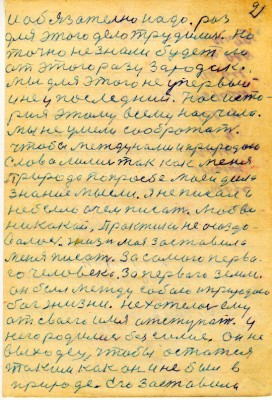 91
и обязателно надо. раз
для этого дело трудимся. Но
точно не знали будет ли
от этого разу Зародик.
Мы для этого не у первый
и не у последний. Нас исто-
рия этому всему научила.
Мы не умели сообротат.
чтобы между нами и природою
Слова лились так как меня
Природа попросьбе моей дала
знание мысли. Я не писал и
небыло очем писат. Любви
никакой, Практика не оказо-
валося. Жизня моя заставила
меня писат. За самого перво-
го человека, За первого земли.
он был между собою и природою
бог жизни. Не хотелося ему
от своего имя отступат. у
него родилися без силие. он не
выходец, чтобы остатся
таким как он и не был в
природе. Его заставила